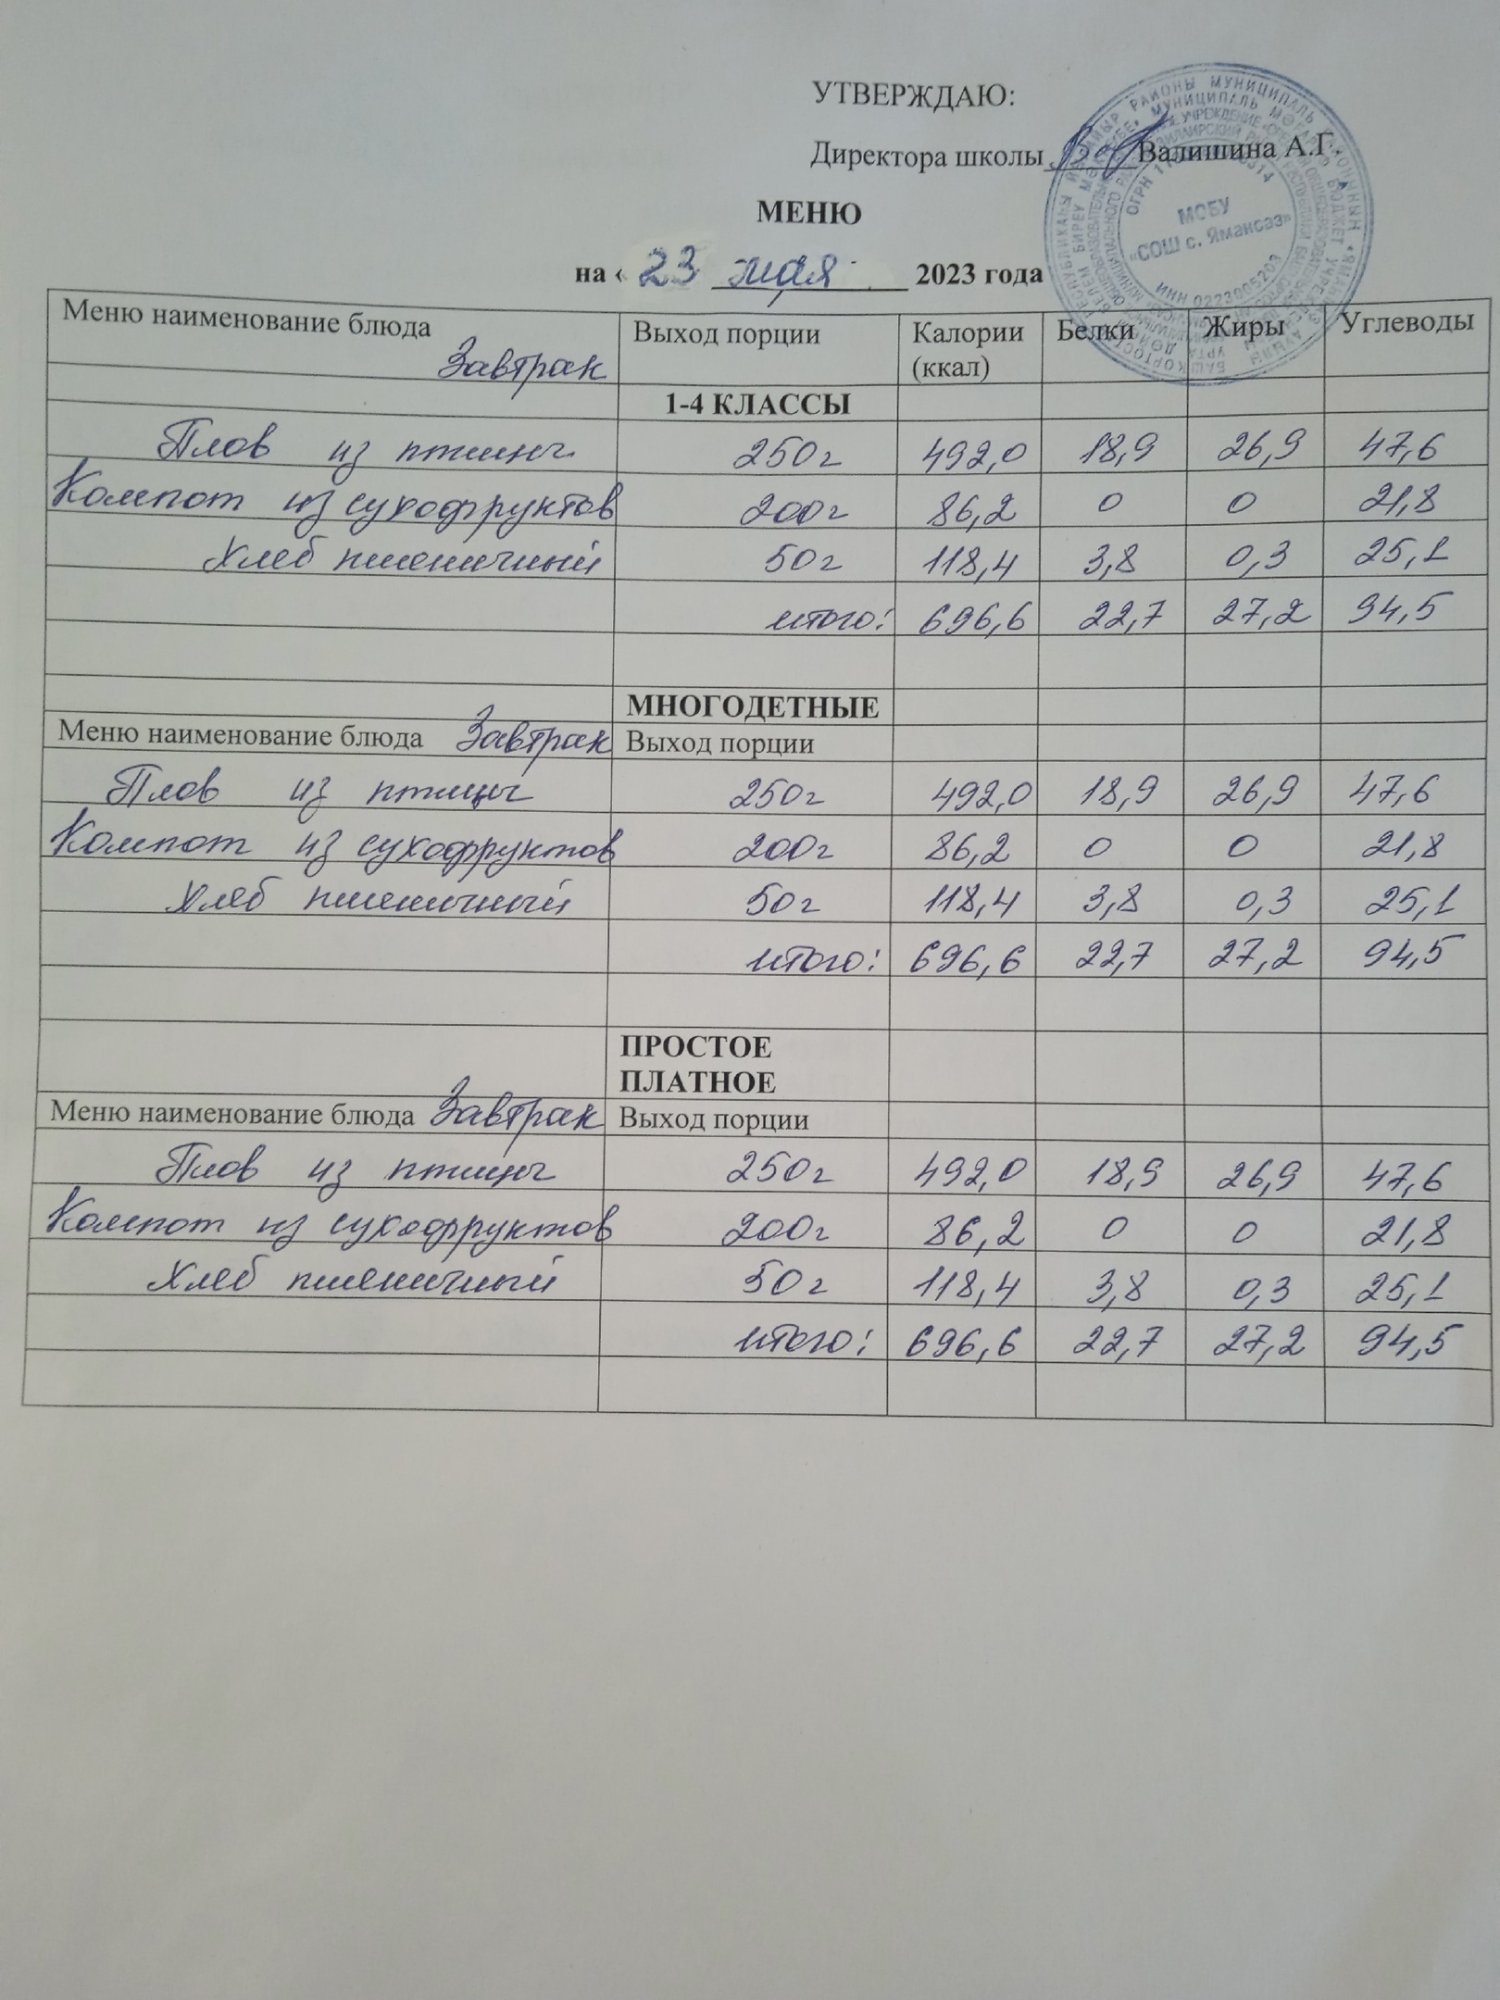 УТВЕРЖДАЮ:
Директора школы Валишина А.Г.
МОБУ
«СОШ с. Ямансаз»
ИНН 0223005203
МЕНЮ
на « 23 мая 2023 года
Меню наименование блюда Завтрак Выход порции Калории (ккал) Белки Жиры Углеводы
1-4 КЛАССЫ
Плов из птицы 250г 492,0 18,9 26,9 47,6
Компот из сухофруктов 200г 86,2 0 0 21,8
Хлеб пшеничный 50г 118,4 3,8 0,3 25,1
итого: 696,6 22,7 27,2 94,5
МНОГОДЕТНЫЕ
Меню наименование блюда Завтрак Выход порции
Плов из птицы 250г 492,0 18,9 26,9 47,6
Компот из сухофруктов 200г 86,2 0 0 21,8
Хлеб пшеничный 50г 118,4 3,8 0,3 25,1
итого: 696,6 22,7 27,2 94,5
ПРОСТОЕ
ПЛАТНОЕ
Меню наименование блюда Завтрак Выход порции
Плов из птицы 250г 492,0 18,9 26,9 47,6
Компот из сухофруктов 200г 86,2 0 0 21,8
Хлеб пшеничный 50г 118,4 3,8 0,3 25,1
итого: 696,6 22,7 27,2 94,5